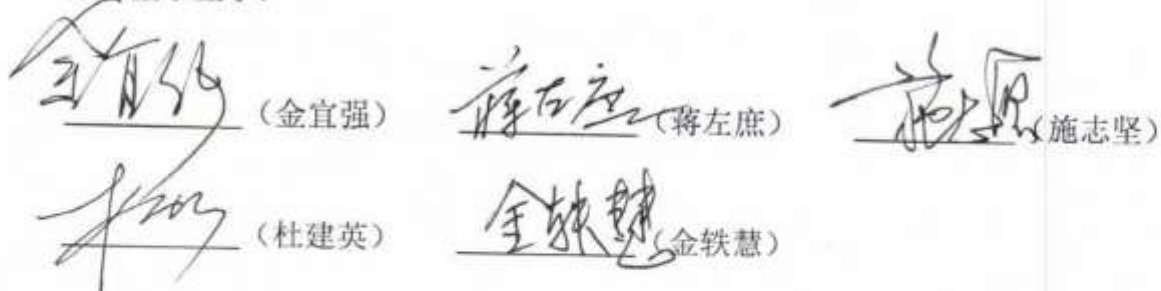 金宜强（金宜强） 蒋左庶（蒋左庶） 施志坚（施志坚）
杜建英（杜建英） 金轶慧（金轶慧）